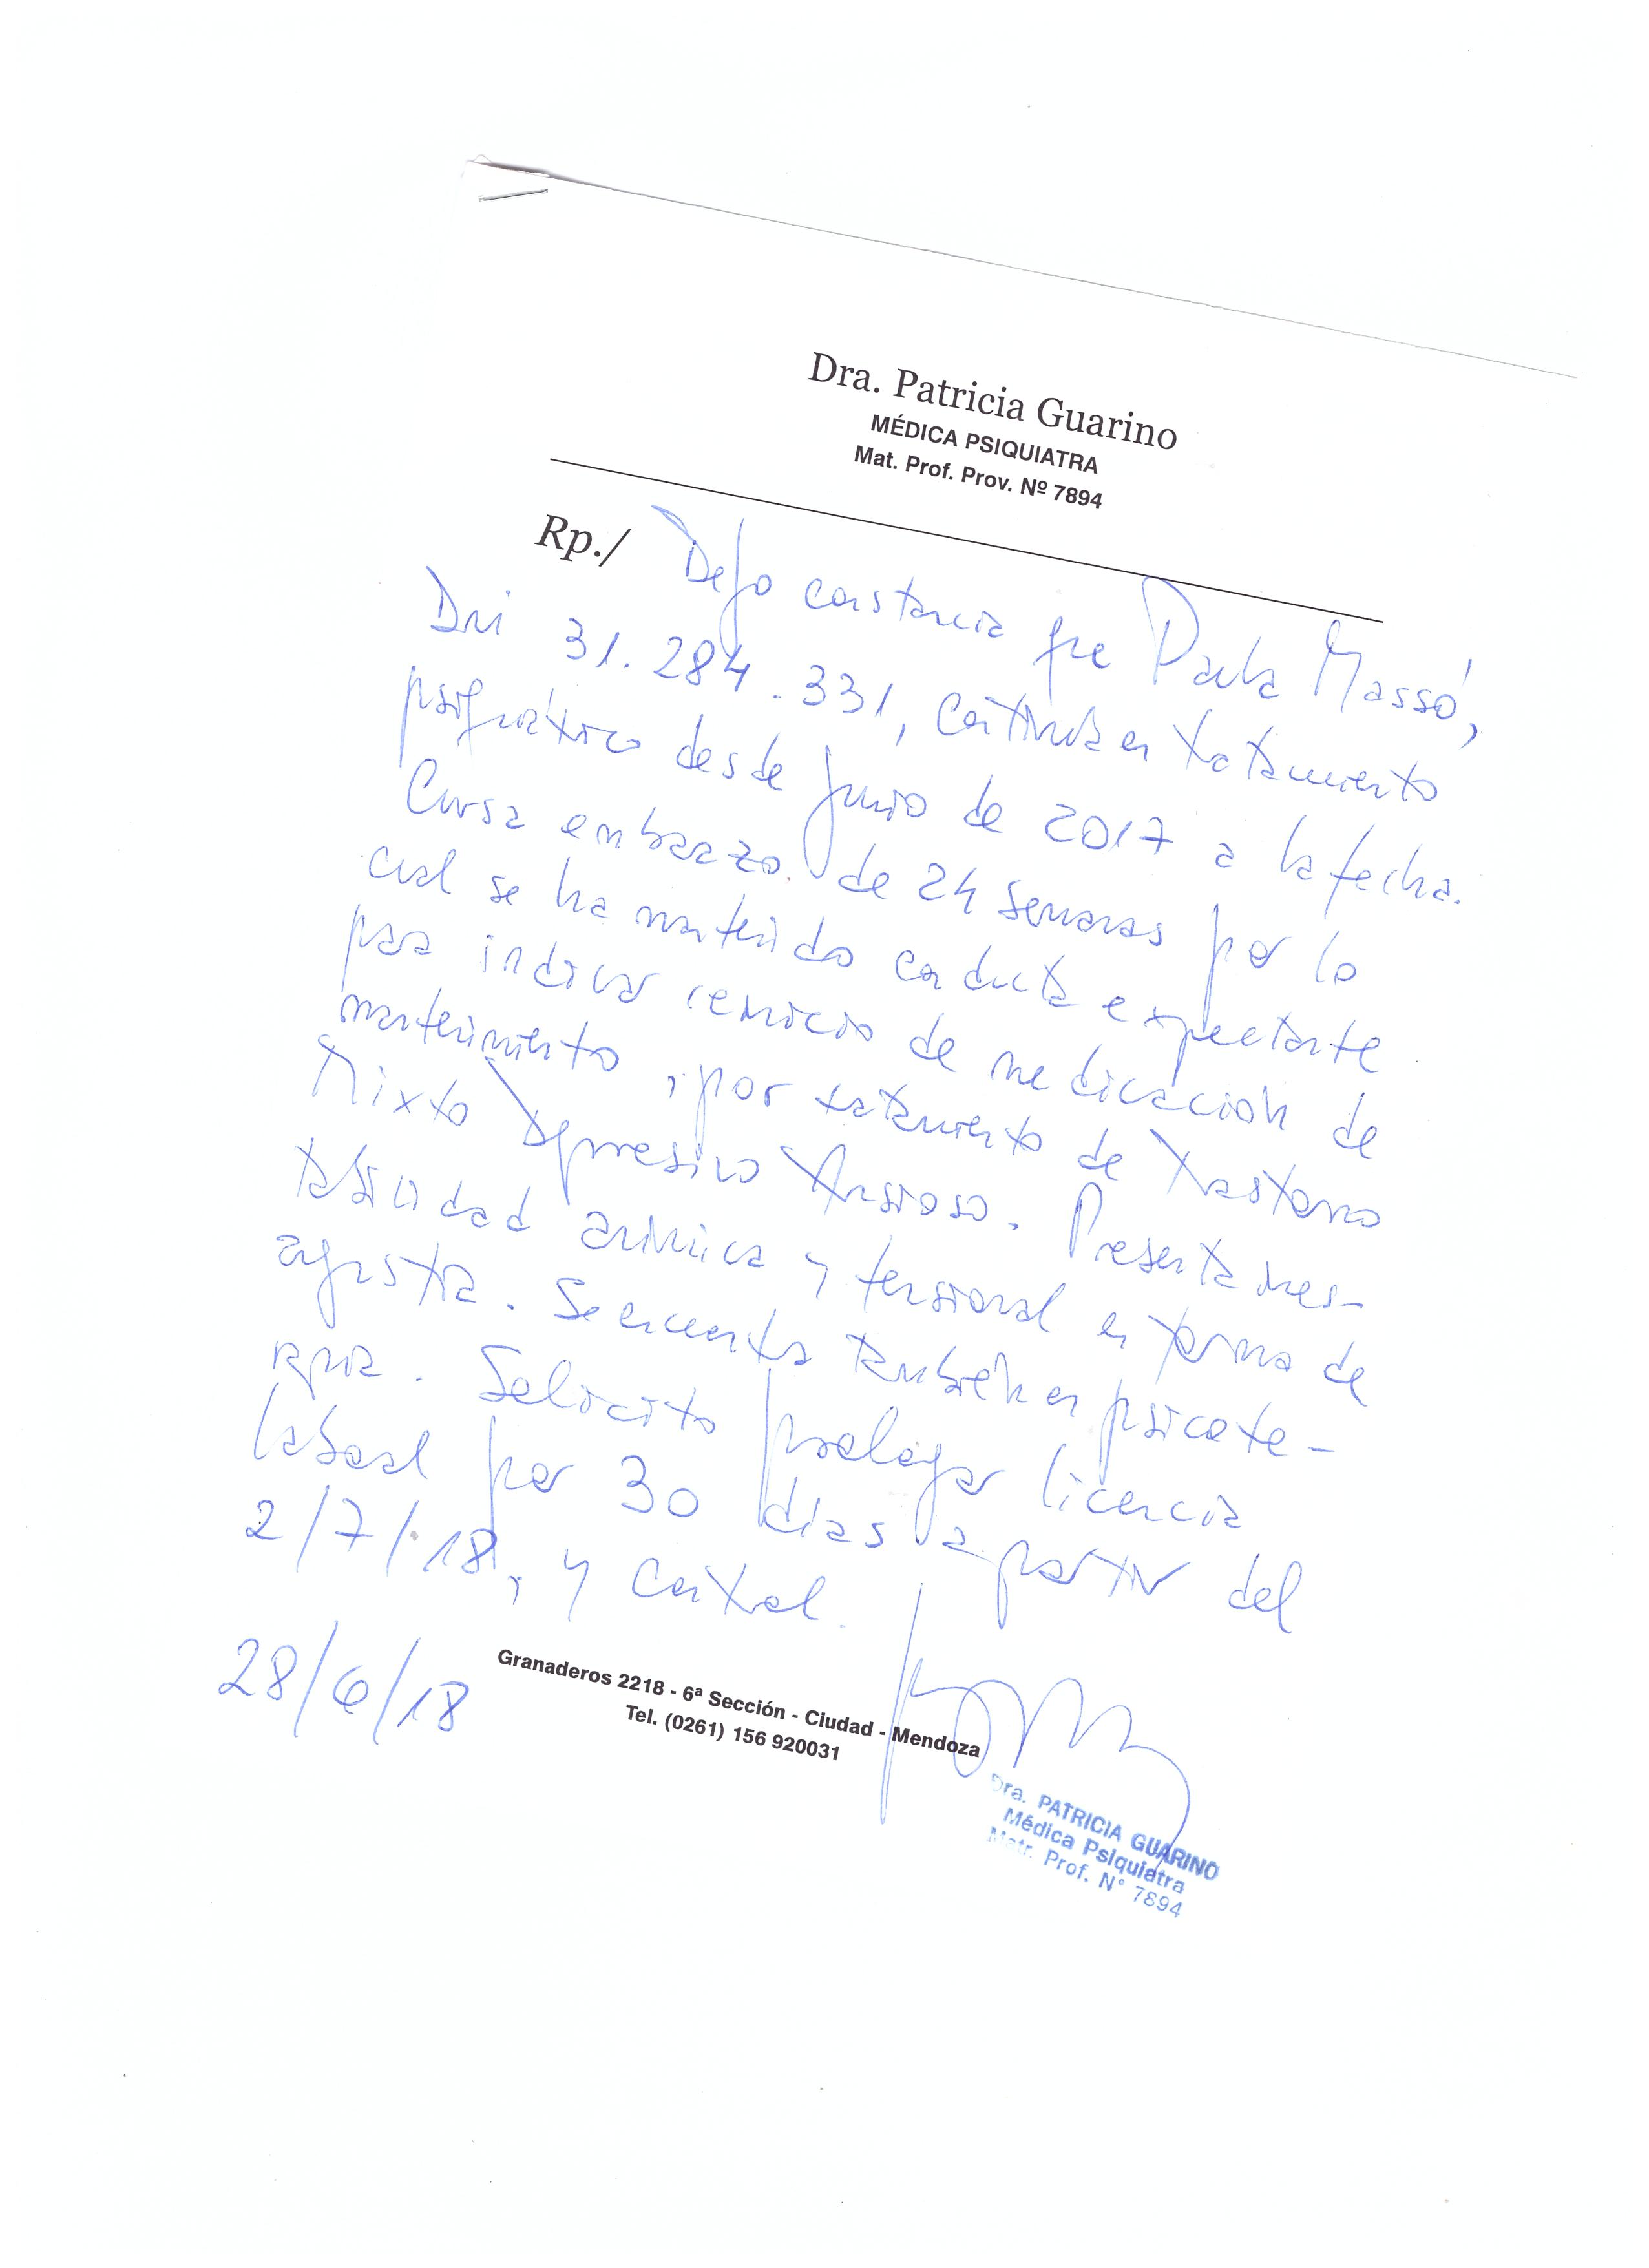 Dra. Patricia Guarino
MÉDICA PSIQUIATRA
Mat. Prof. Prov. Nº 7894
Rp./ Dejo constancia que Paula Massó,
Dni 31.284.331, continúa en tratamiento
psiquiátrico desde Junio de 2017 a la fecha.
Cursa embarazo de 24 semanas por lo
cual se ha mantenido conducta expectante
para indicar reinicio de medicación de
mantenimiento, por tratamiento de Trastorno
Mixto Depresivo Ansioso. Presenta ines-
tabilidad anímica y tensional en forma de
angustia. Se encuentra también en psicote-
rapia. Solicito prolongar licencia
laboral por 30 días a partir del
2/7/18, y control.
28/6/18
Granaderos 2218 - 6ª Sección - Ciudad - Mendoza
Tel. (0261) 156 920031
Dra. PATRICIA GUARINO
Médica Psiquiatra
Matr. Prof. N° 7894